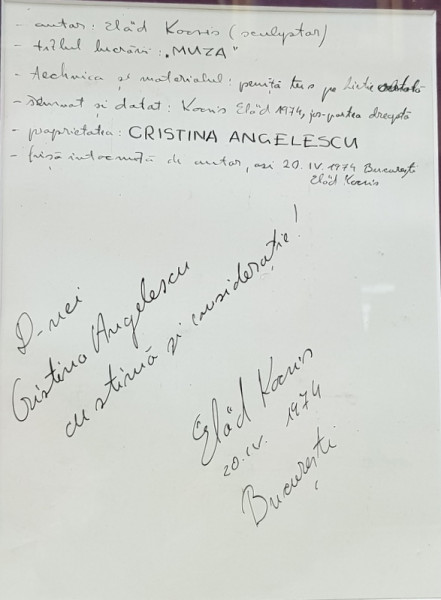 - autor: Eläd Kocsis (sculyptor)
- titlul lucrării: „MUZA”
- technica și materialul: peniță tus pe hîrtie
- semnat si datat: Kocsis Eläd 1974, jos-partea dreaptă
- proprietatea: CRISTINA ANGELESCU
- fișă întocmită de autor, azi 20. IV. 1974 București
Eläd Kocsis
D-nei
Cristina Angelescu
cu stimă și considerație!
Eläd Kocsis
20. IV. 1974
București